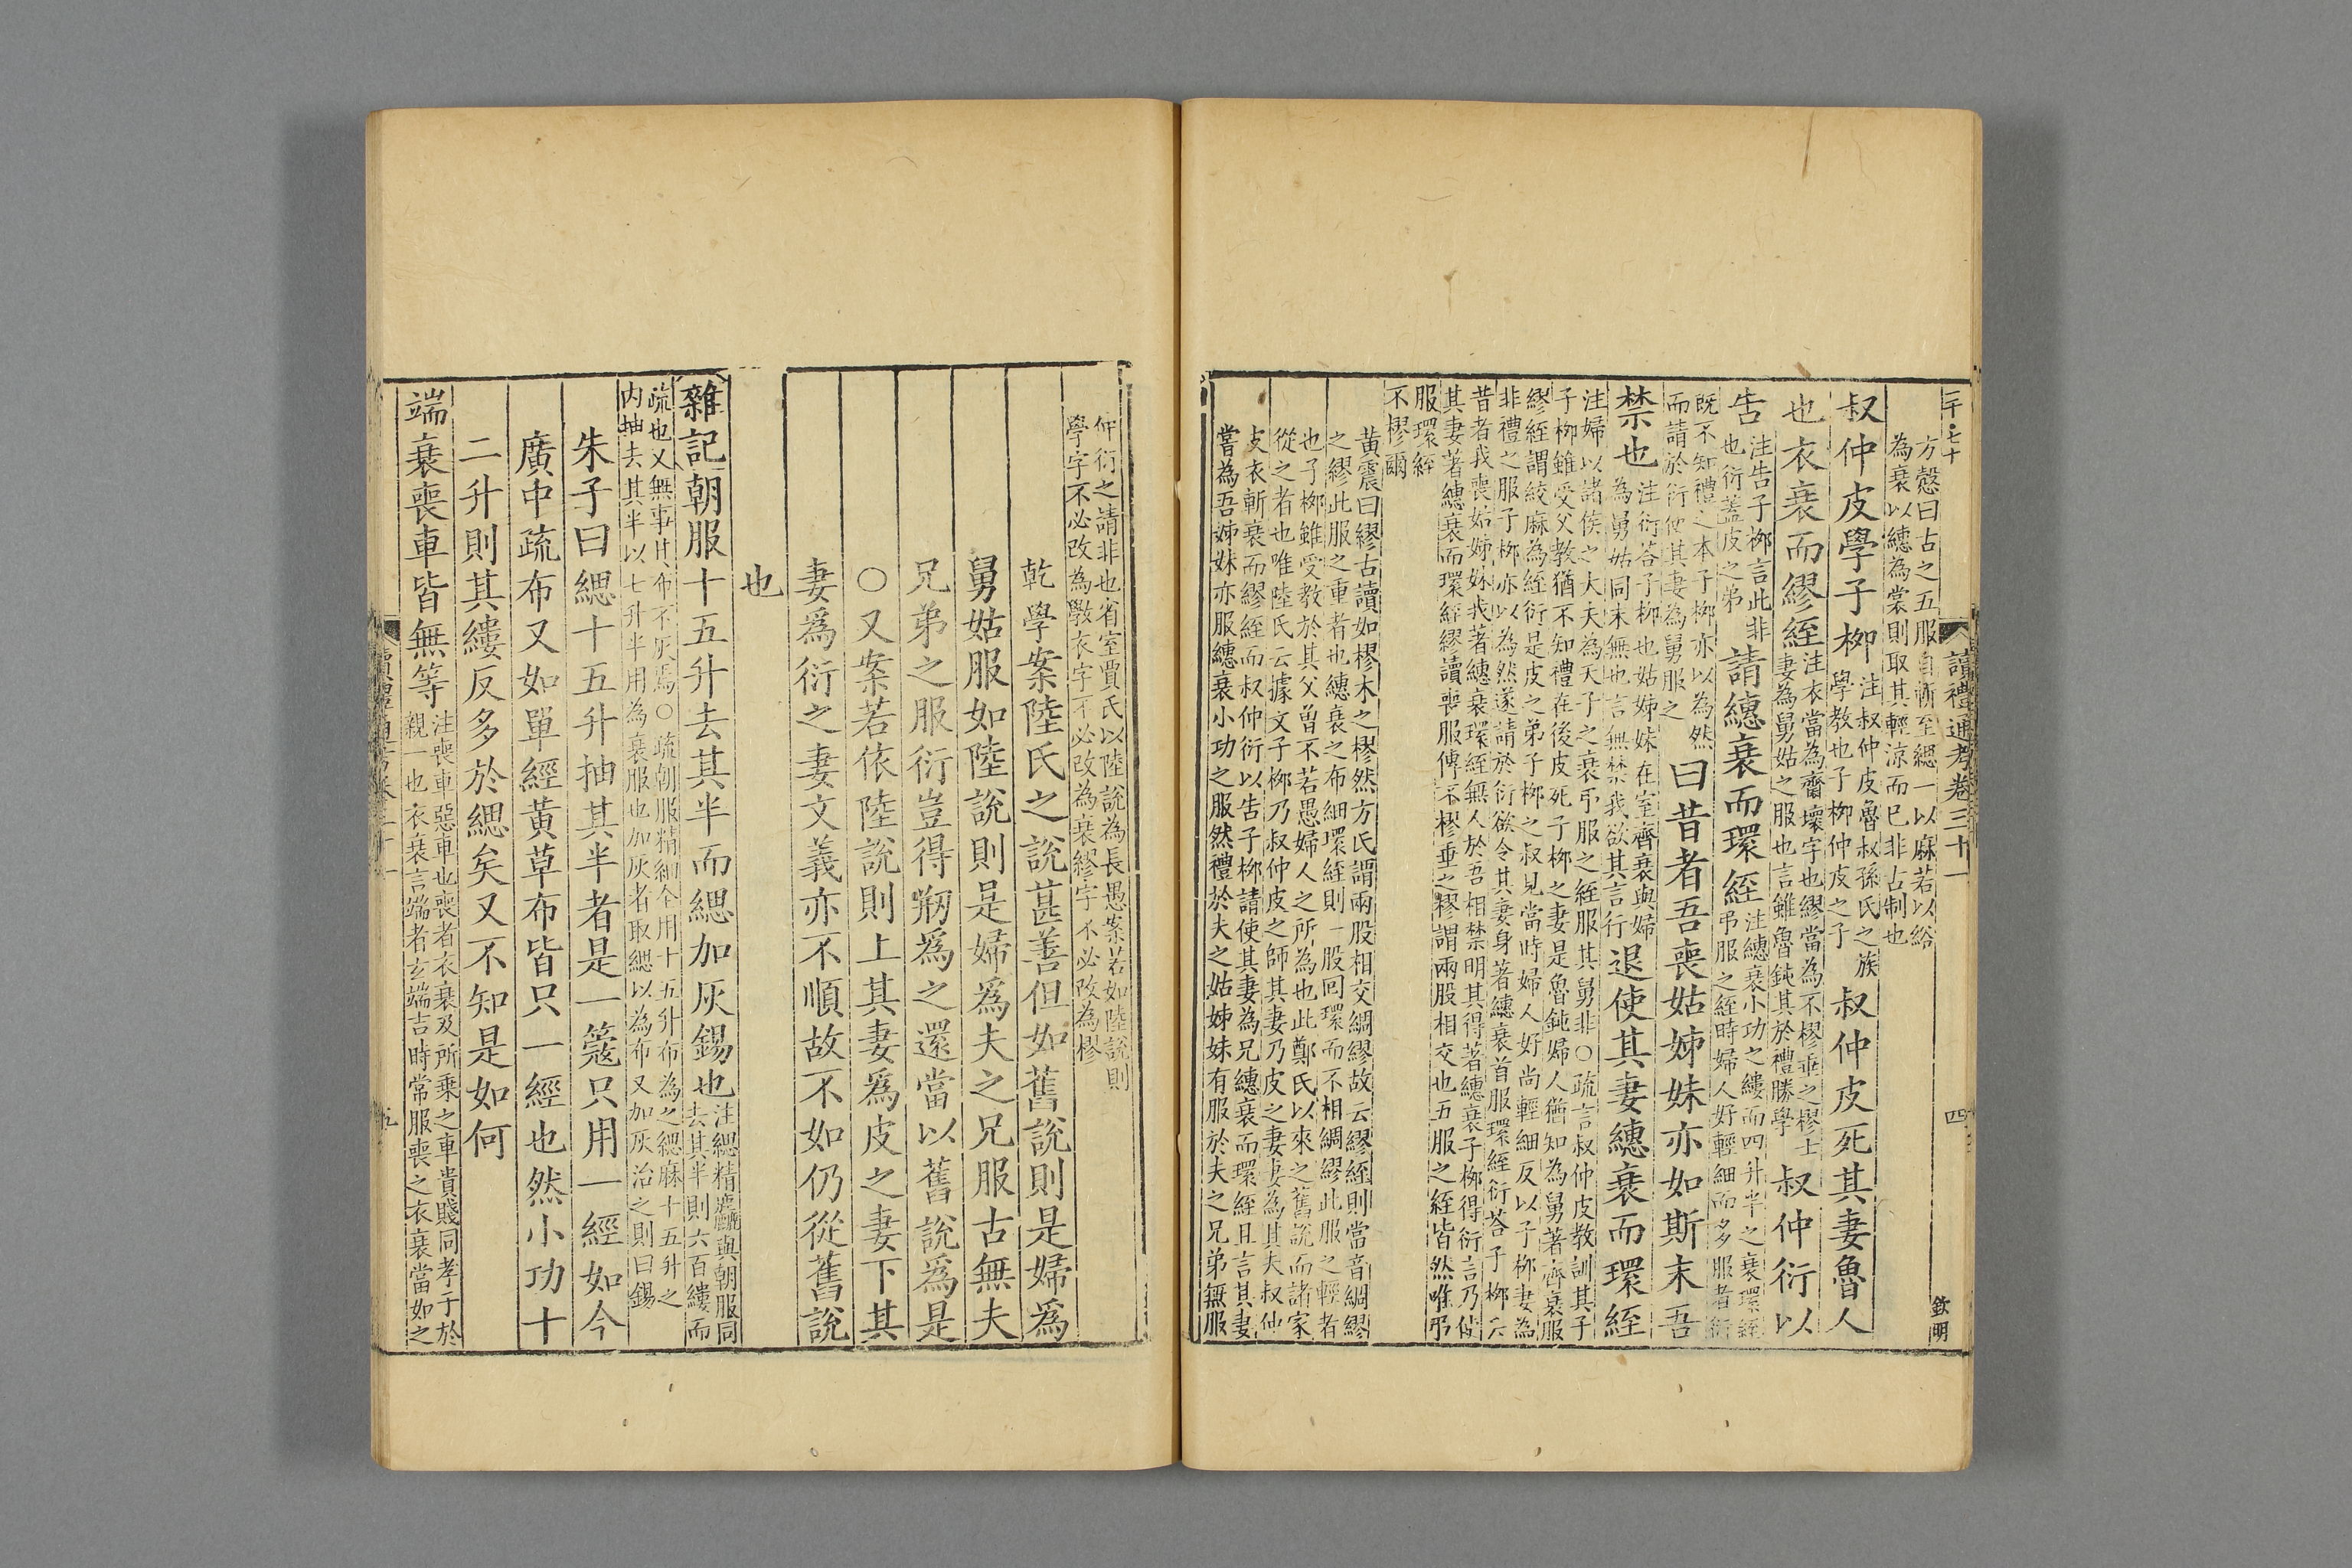 讀禮通考卷三十一
四
欽明
方愨曰古之五服自斬至緦一以麻若以綌
為衰以繐為裳則取其輕涼而已非古制也
叔仲皮學子桺注叔仲皮魯叔孫氏之族學教也子桺仲皮之子叔仲皮死其妻魯人
也衣衰而繆絰注衣當為齊壞字也繆當為不樛垂之樛士妻為舅姑之服也言雖魯鈍其於禮勝學叔仲衍以
告注告子桺言此非也衍蓋皮之弟請繐衰而環絰注繐衰小功之縷而四升半之衰環絰弔服之絰時婦人好輕細而多服者衍
既不知禮之本子桺亦以為然而請於衍使其妻為舅服之曰昔者吾喪姑姊妹亦如斯末吾
禁也注衍荅子桺也姑姊妹在室齊衰與婦為舅姑同末無也言無禁我欲其言行退使其妻繐衰而環絰
注婦以諸侯之大夫為天子之衰弔服之絰服其舅非○疏言叔仲皮教訓其子
子桺雖受父教猶不知禮在後皮死子桺之妻是魯鈍婦人猶知為舅著齊衰服
繆絰謂絞麻為絰衍是皮之弟子桺之叔見當時婦人好尚輕細反以子桺妻為
非禮之服子桺亦以為然遂請於衍欲令其妻身著繐衰首服環絰衍荅子桺云
昔者我喪姑姊妹我著繐衰環絰無人於吾相禁明其得著繐衰子桺得衍言乃使
其妻著繐衰而環絰繆讀喪服傳不樛垂之樛謂兩股相交也五服之絰皆然唯弔
服環絰
不樛爾
黃震曰繆古讀如樛木之樛然方氏謂兩股相交綢繆故云繆絰則當音綢繆
之繆此服之重者也繐衰之布細環絰則一股回環而不相綢繆此服之輕者
也子桺雖受教於其父曾不若愚婦人之所為也此鄭氏以來之舊說而諸家
從之者也唯陸氏云據文子桺乃叔仲皮之師其妻乃皮之妻妻為其夫叔仲
皮衣斬衰而繆絰而叔仲衍以告子桺請使其妻為兄繐衰而環絰且言其妻
嘗為吾姊妹亦服繐衰小功之服然禮於夫之姑姊妹有服於夫之兄弟無服
仲衍之請非也省室賈氏以陸說為長愚案若如陸說則
學字不必改為斆衣字不必改為衰繆字不必改為樛
乾學案陸氏之說甚善但如舊說則是婦爲
舅姑服如陸說則是婦爲夫之兄服古無夫
兄弟之服衍豈得剏爲之還當以舊說爲是
○又案若依陸說則上其妻爲皮之妻下其
妻爲衍之妻文義亦不順故不如仍從舊說
也
雜記朝服十五升去其半而緦加灰錫也注緦精麤與朝服同去其半則六百縷而
疏也又無事其布不灰焉○疏朝服精細全用十五升布為之緦麻十五升之
內抽去其半以七升半用為衰服也加灰者取緦以為布又加灰治之則曰錫
朱子曰緦十五升抽其半者是一簆只用一經如今
廣中疏布又如單經黃草布皆只一經也然小功十
二升則其縷反多於緦矣又不知是如何
端衰喪車皆無等注喪車惡車也喪者衣衰及所乘之車貴賤同孝子於親一也衣衰言端者玄端吉時常服喪之衣衰當如之
五